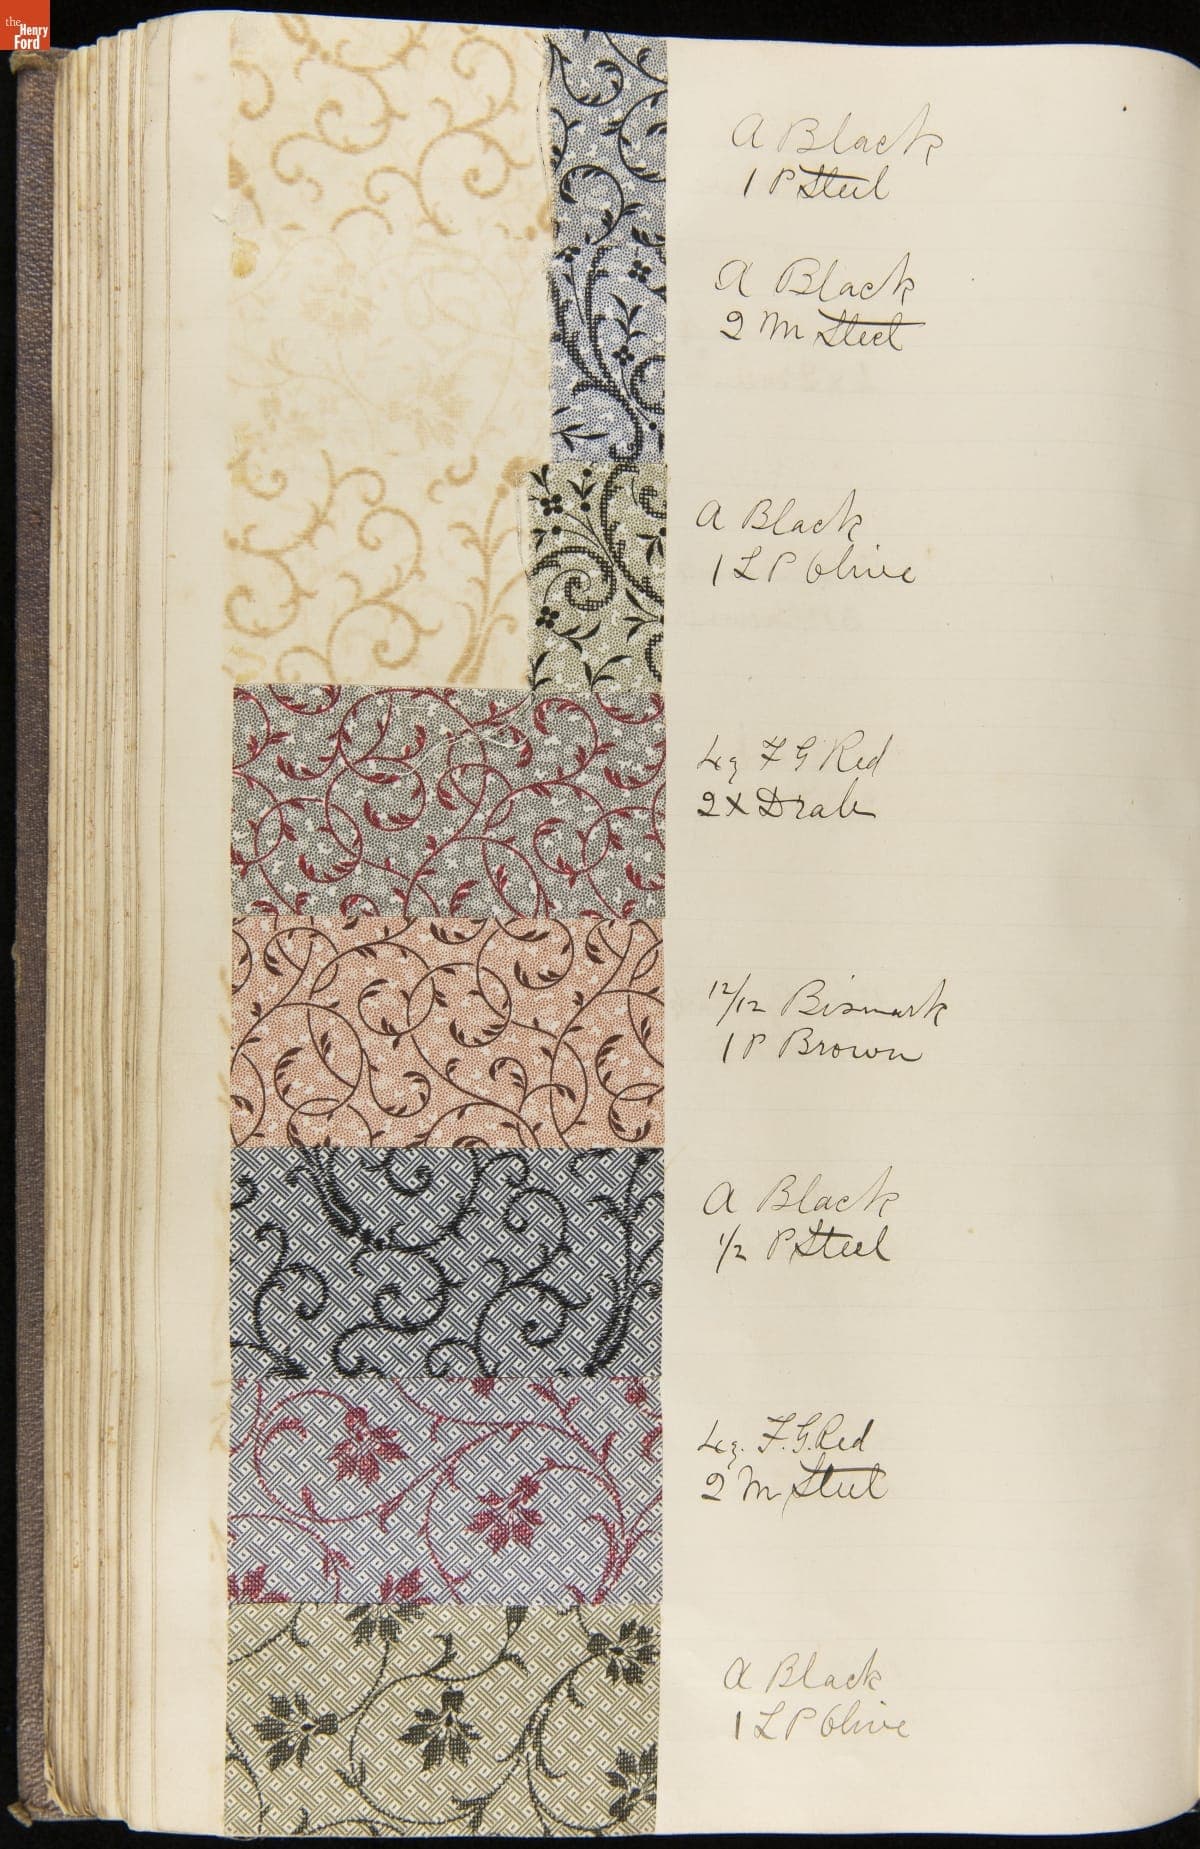 the
Henry
Ford
A Black
1 P Steel
A Black
2 M Steel
A Black
1 L P Olive
F G Red
2 X Drab
12/12 Bismark
1 P Brown
A Black
1/2 P Steel
F. G. Red
2 M Steel
A Black
1 L P Olive